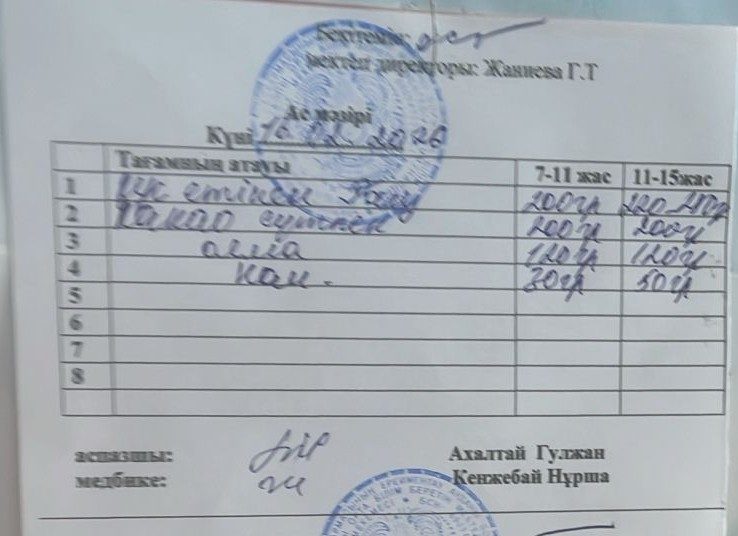 Бекітемін:
мектеп директоры: Жаниева Г.Т
Ас мәзірі
Күні 16.02.2026
Тағамның атауы 7-11 жас 11-15жас
1 етінен 200гр
2 Какао сүтпен 200гр 200гр
3 алма 120гр 120гр
4 нан. 30гр 50гр
5
6
7
8
аспазшы: Ахалтай Гулжан
медбике: Кенжебай Нұрша